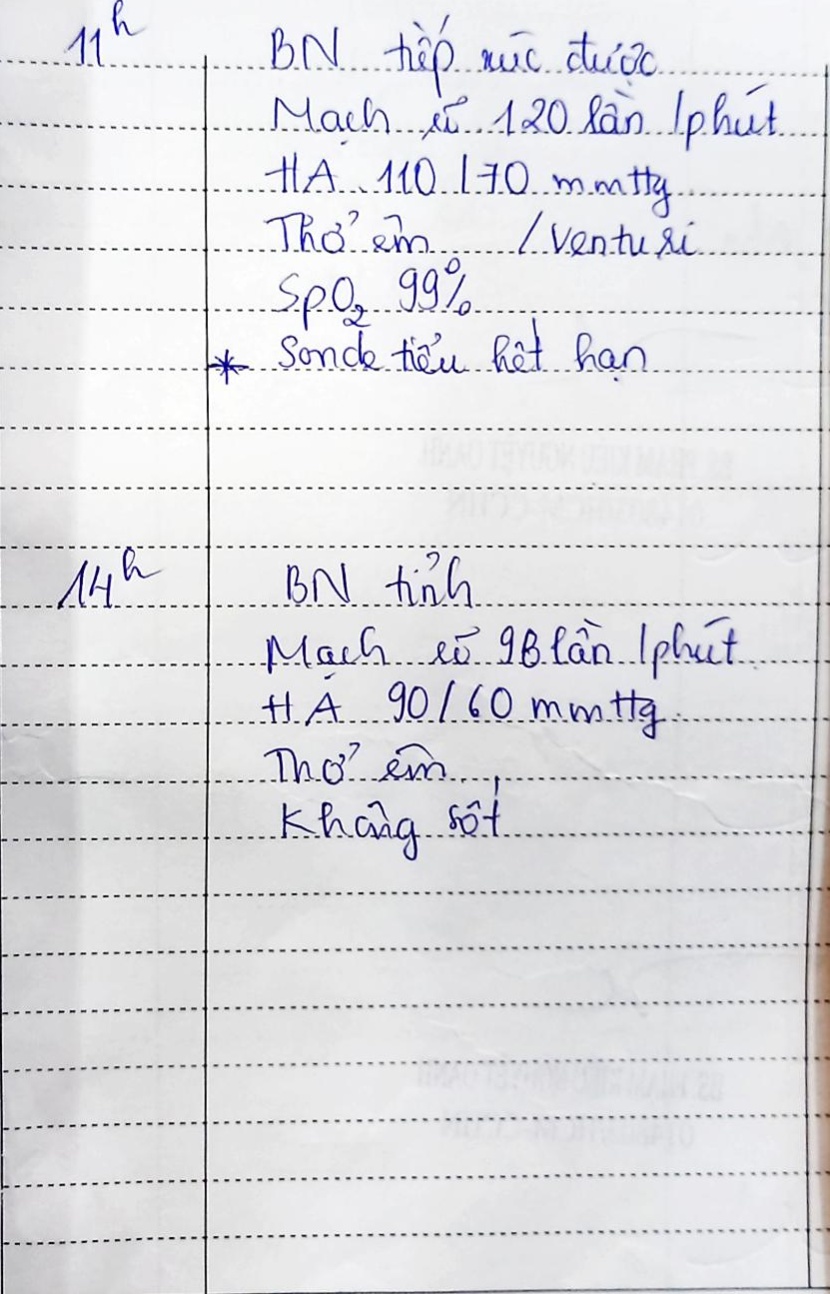 11h BN tiếp xúc được
Mạch rõ 120 lần /phút
HA 110/70 mmHg
Thở êm /Venturi
SpO2 99%
* Sonde tiểu hết hạn
14h BN tỉnh
Mạch rõ 98 lần /phút
HA 90/60 mmHg
Thở êm
Không sốt